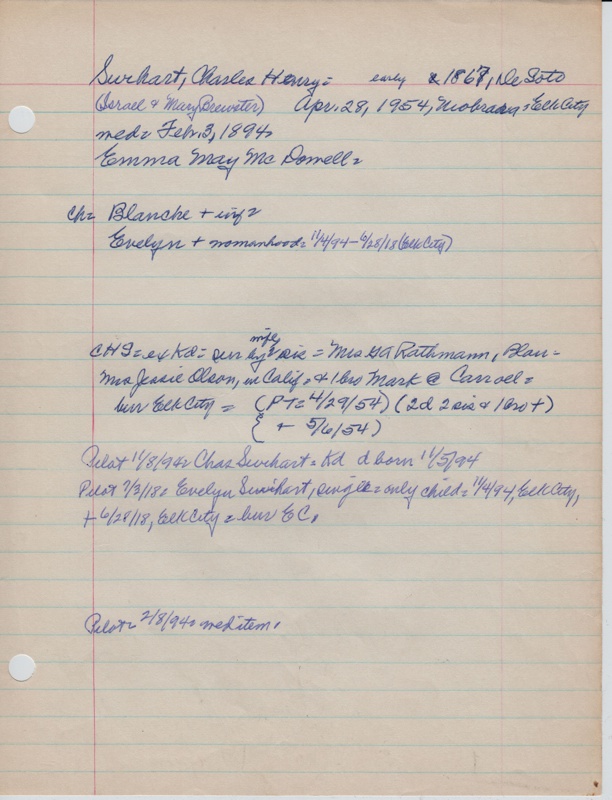 Swihart, Charles Henry = early 1867, De Soto
(Israel & Mary Brewster) Apr. 28, 1954, Niobrara = Elk City
med = Feb. 3, 1894 =
Emma May McDowell =
ch = Blanche + inf =
Evelyn + womanhood = 11/4/94 – 6/28/18 (Elk City)
CHS = ex Kd = sur by wife 2 sis = Mrs GA Rathmann, Blair =
Mrs Jessie Olson, in Calif = & 1 bro Mark @ Carroll =
bur Elk City = (PT = 4/29/54) (2d 2 sis & 1 bro +)
{ + 5/6/54)
Pilot 11/8/94 = Chas Swihart = Kd d born 11/5/94
Pilot 7/3/18 = Evelyn Swihart, single = only child = 11/4/94, Elk City,
+ 6/28/18, Elk City = bur EC.
Pilot = 2/8/94 = med item.